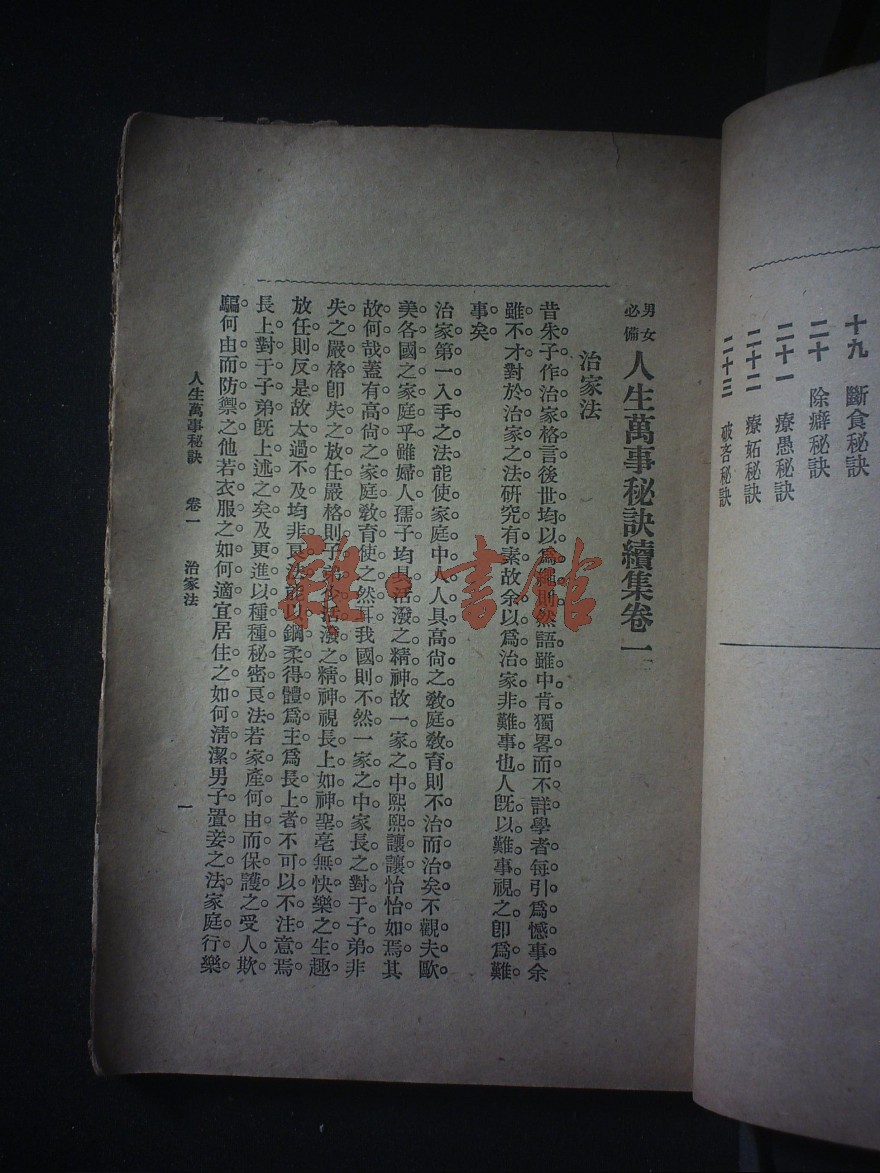 十九 斷食秘訣
二十 除癖秘訣
二十一 療愚秘訣
二十二 療妬秘訣
二十三 破吝秘訣
男女必備 人生萬事秘訣續集卷一
治家法
昔朱子作治家格言後世均以爲繩則然語雖中肯獨畧而不詳學者每引爲憾事余
雖不才對於治家之法研究有素故余以爲治家非難事也人既以難事視之卽爲難
事矣
治家第一入手之法能使家庭中人人具高尙之敎庭敎育則不治而治矣不觀夫歐
美各國之家庭乎雖婦人孺子均具活潑之精神故一家之中熙熙讓讓怡怡如焉其
故何哉蓋有高尙之家庭敎育使之然耳我國則不然一家之中家長之對于子弟非
失之嚴格卽失之放任嚴格則子弟少活潑之精神視長上如神聖毫無快樂之生趣
放任則反是故太過不及均非良法能以鋼柔得體爲主爲長上者不可以不注意焉
長上對于子弟旣上述之矣及更進以種種秘密良法若家產何由而保護之受人欺
騙何由而防禦之他若衣服之如何適宜居住之如何淸潔男子置妾之法家庭行樂
人生萬事秘訣 卷一 治家法 一
雜·書館